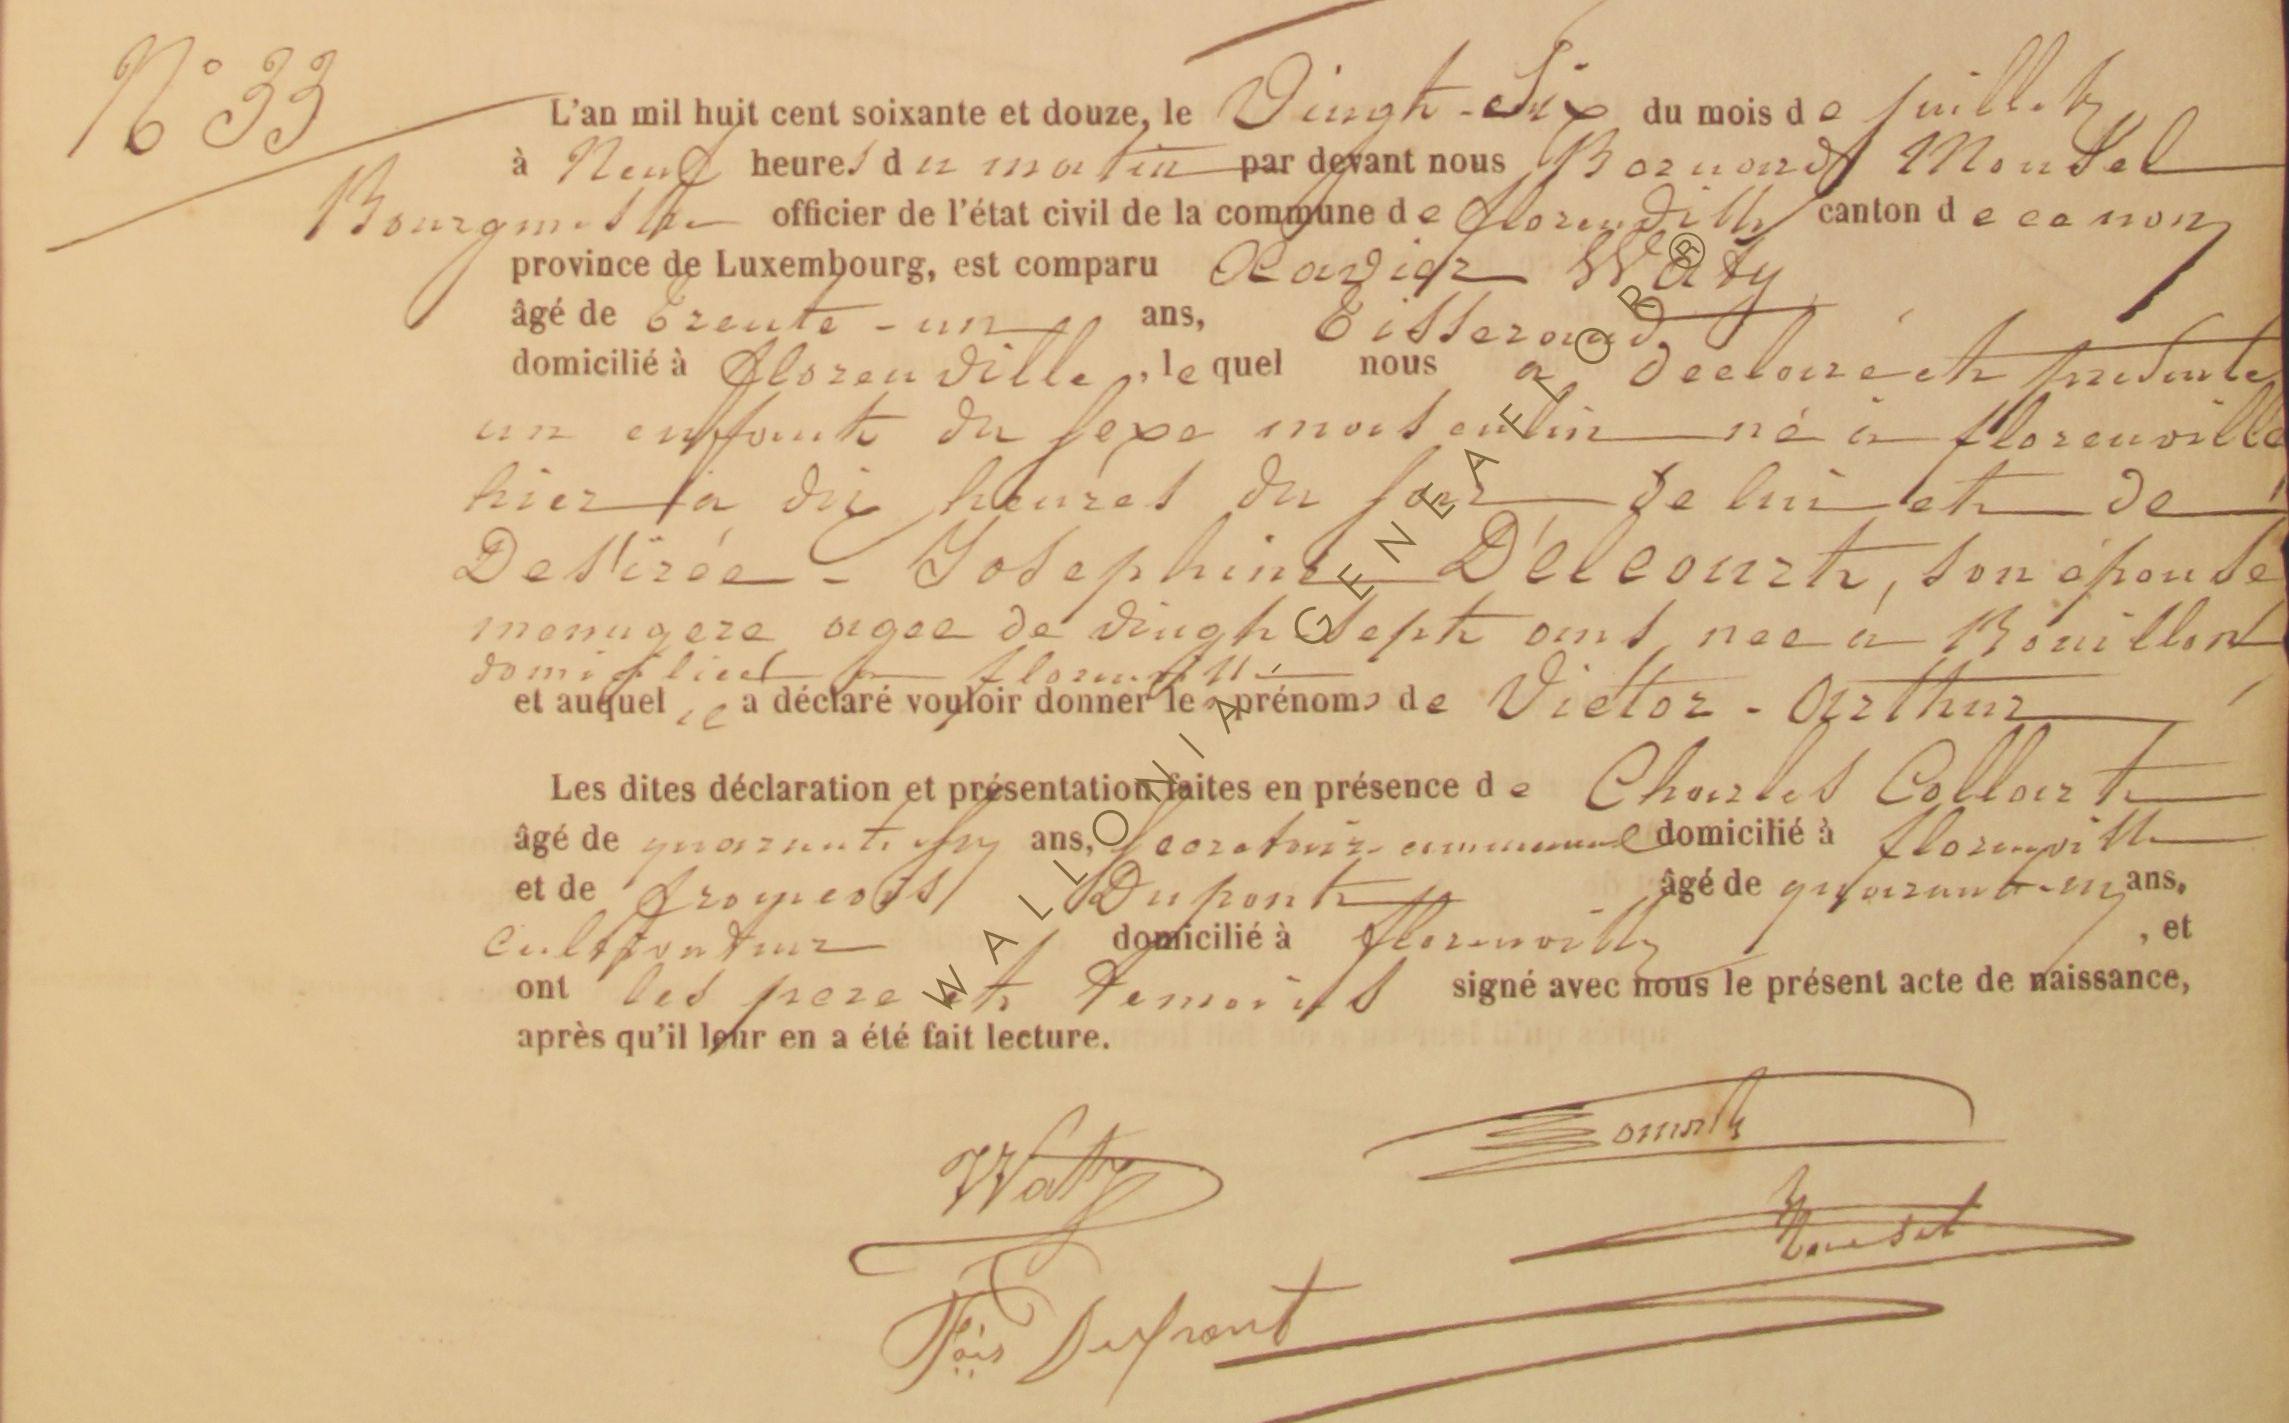 N° 33
L'an mil huit cent soixante et douze, le Vingt-Six du mois de juillet
à Neuf heures du matin par devant nous Bernard Mousel
Bourgmestre officier de l'état civil de la commune de florenville canton de ce nom
province de Luxembourg, est comparu Xavier Waty
âgé de trente-un ans, Tisserand
domicilié à florenville, lequel nous a déclaré et présenté
un enffant du sexe masculin né à florenville
hier à dix heures du soir de lui et de
Desirée-Josephine Delcourt, son épouse
menagere agee de vingt sept ans, nee a Bouillon
domiciliée à florenville
et auquel il a déclaré vouloir donner les prénoms de Victor-Arthur
Les dites déclaration et présentation faites en présence de Charles Collart
âgé de quarante ans, Secretaire communal domicilié à florenville
et de françois Dupont âgé de quarante-un ans,
Cultivateur domicilié à florenville, et
ont les pere et temoins signé avec nous le présent acte de naissance,
après qu'il leur en a été fait lecture.
Waty
Fçois Dupont
WALLONIA. GENEAFLOR®